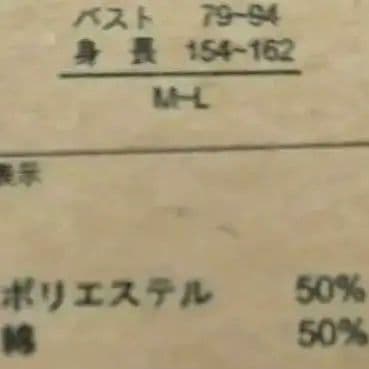 バスト 79~94
身長 154~162
M~L
表示
ポリエステル 50%
綿 50%